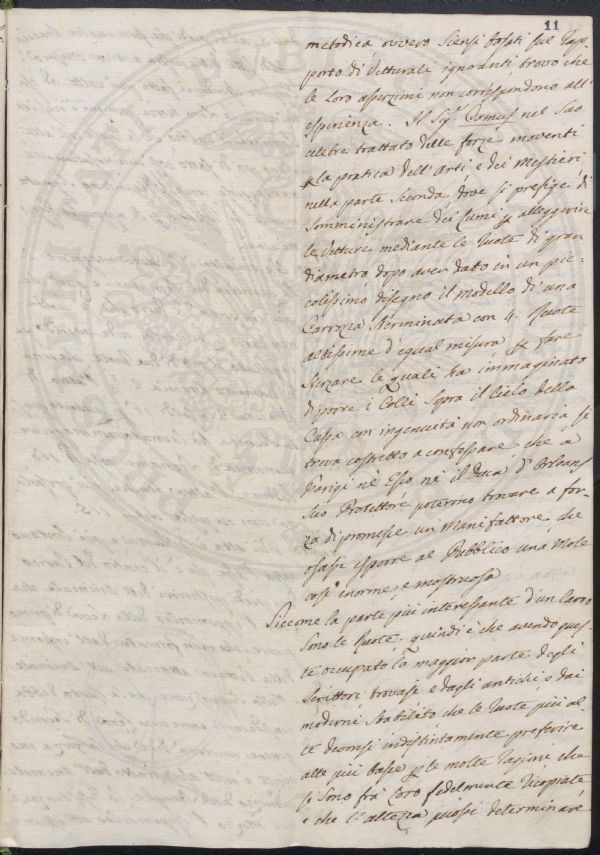 11
metodica ovvero siensi basati sul Rap-
porto di Vetturali ignoranti, trovo che
le loro asserzioni non corrispondono all'
esperienza. Il Sig.r Camus nel suo
celebre trattato delle forze moventi
p la pratica dell'Arti, e dei Mestieri
nella parte seconda, dove si prefige di
somministrare dei lumi p alleggerire
le Vetture mediante le Ruote di gran
diametro, dopo aver dato in un pic-
colissimo disegno il modello di una
Carrozza sterminata con 4. Ruote
altissime d'egual misura, p fare
sterzare le quali ha immaginato
di porre i Colli sopra il Cielo della
Cassa con ingenuità non ordinaria si
trova costretto a confessare, che a
Parigi nè Esso, nè il Duca d'Orleans
suo Protettore poterono trovare a for-
za di promesse un Manifattore, che
osasse esporre al Pubblico una Mole
così inorme, e mostruosa
Siccome la parte più interessante d'un Carro
sono le Ruote, quindi è che avendo ques-
te occupato la maggior parte degli
Scrittori trovasi e dagli antichi, e dai
moderni stabilito, che le Ruote più al-
te devonsi indistintamente preferire
alle più basse p le molte ragioni che
si sono frà loro fedelmente ricopiate
e che l'altezza puossi determinare